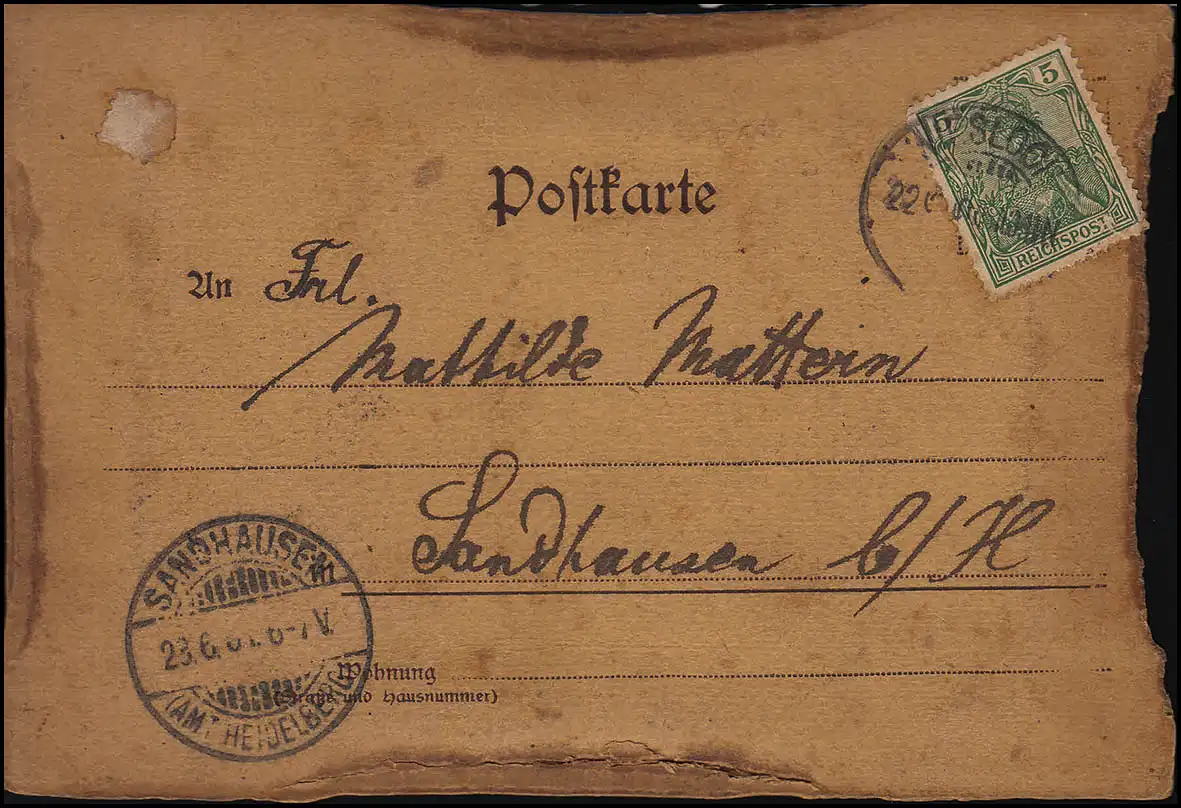 Postkarte
5
5
REICHSPOST
SLOCH
22 6
An Frl.
Mathilde Mattern
Sandhausen b/H
SANDHAUSEN
23.6.01. 6-7 V.
(AMT HEIDELBERG)
Wohnung
(Straße und Hausnummer)